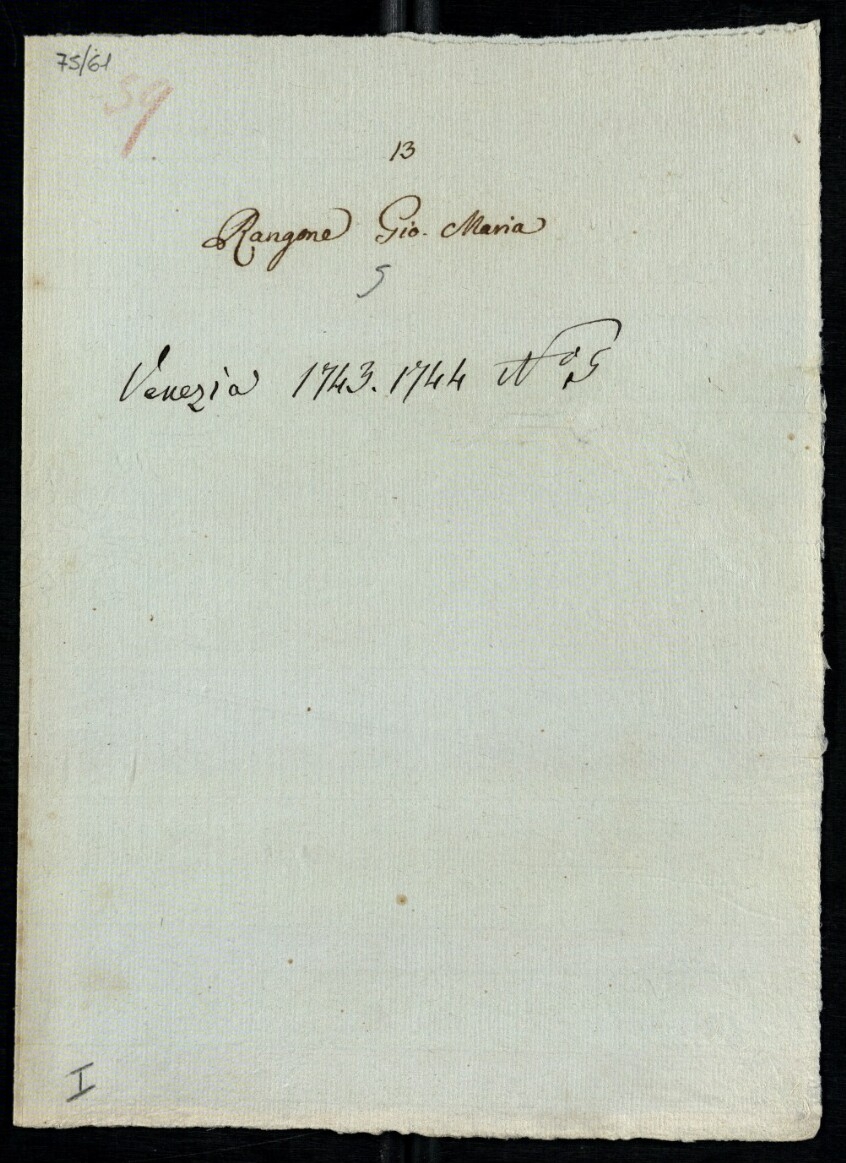 75/61
59
13
Rangone Gio. Maria
5
Venezia 1743. 1744 No 5
I